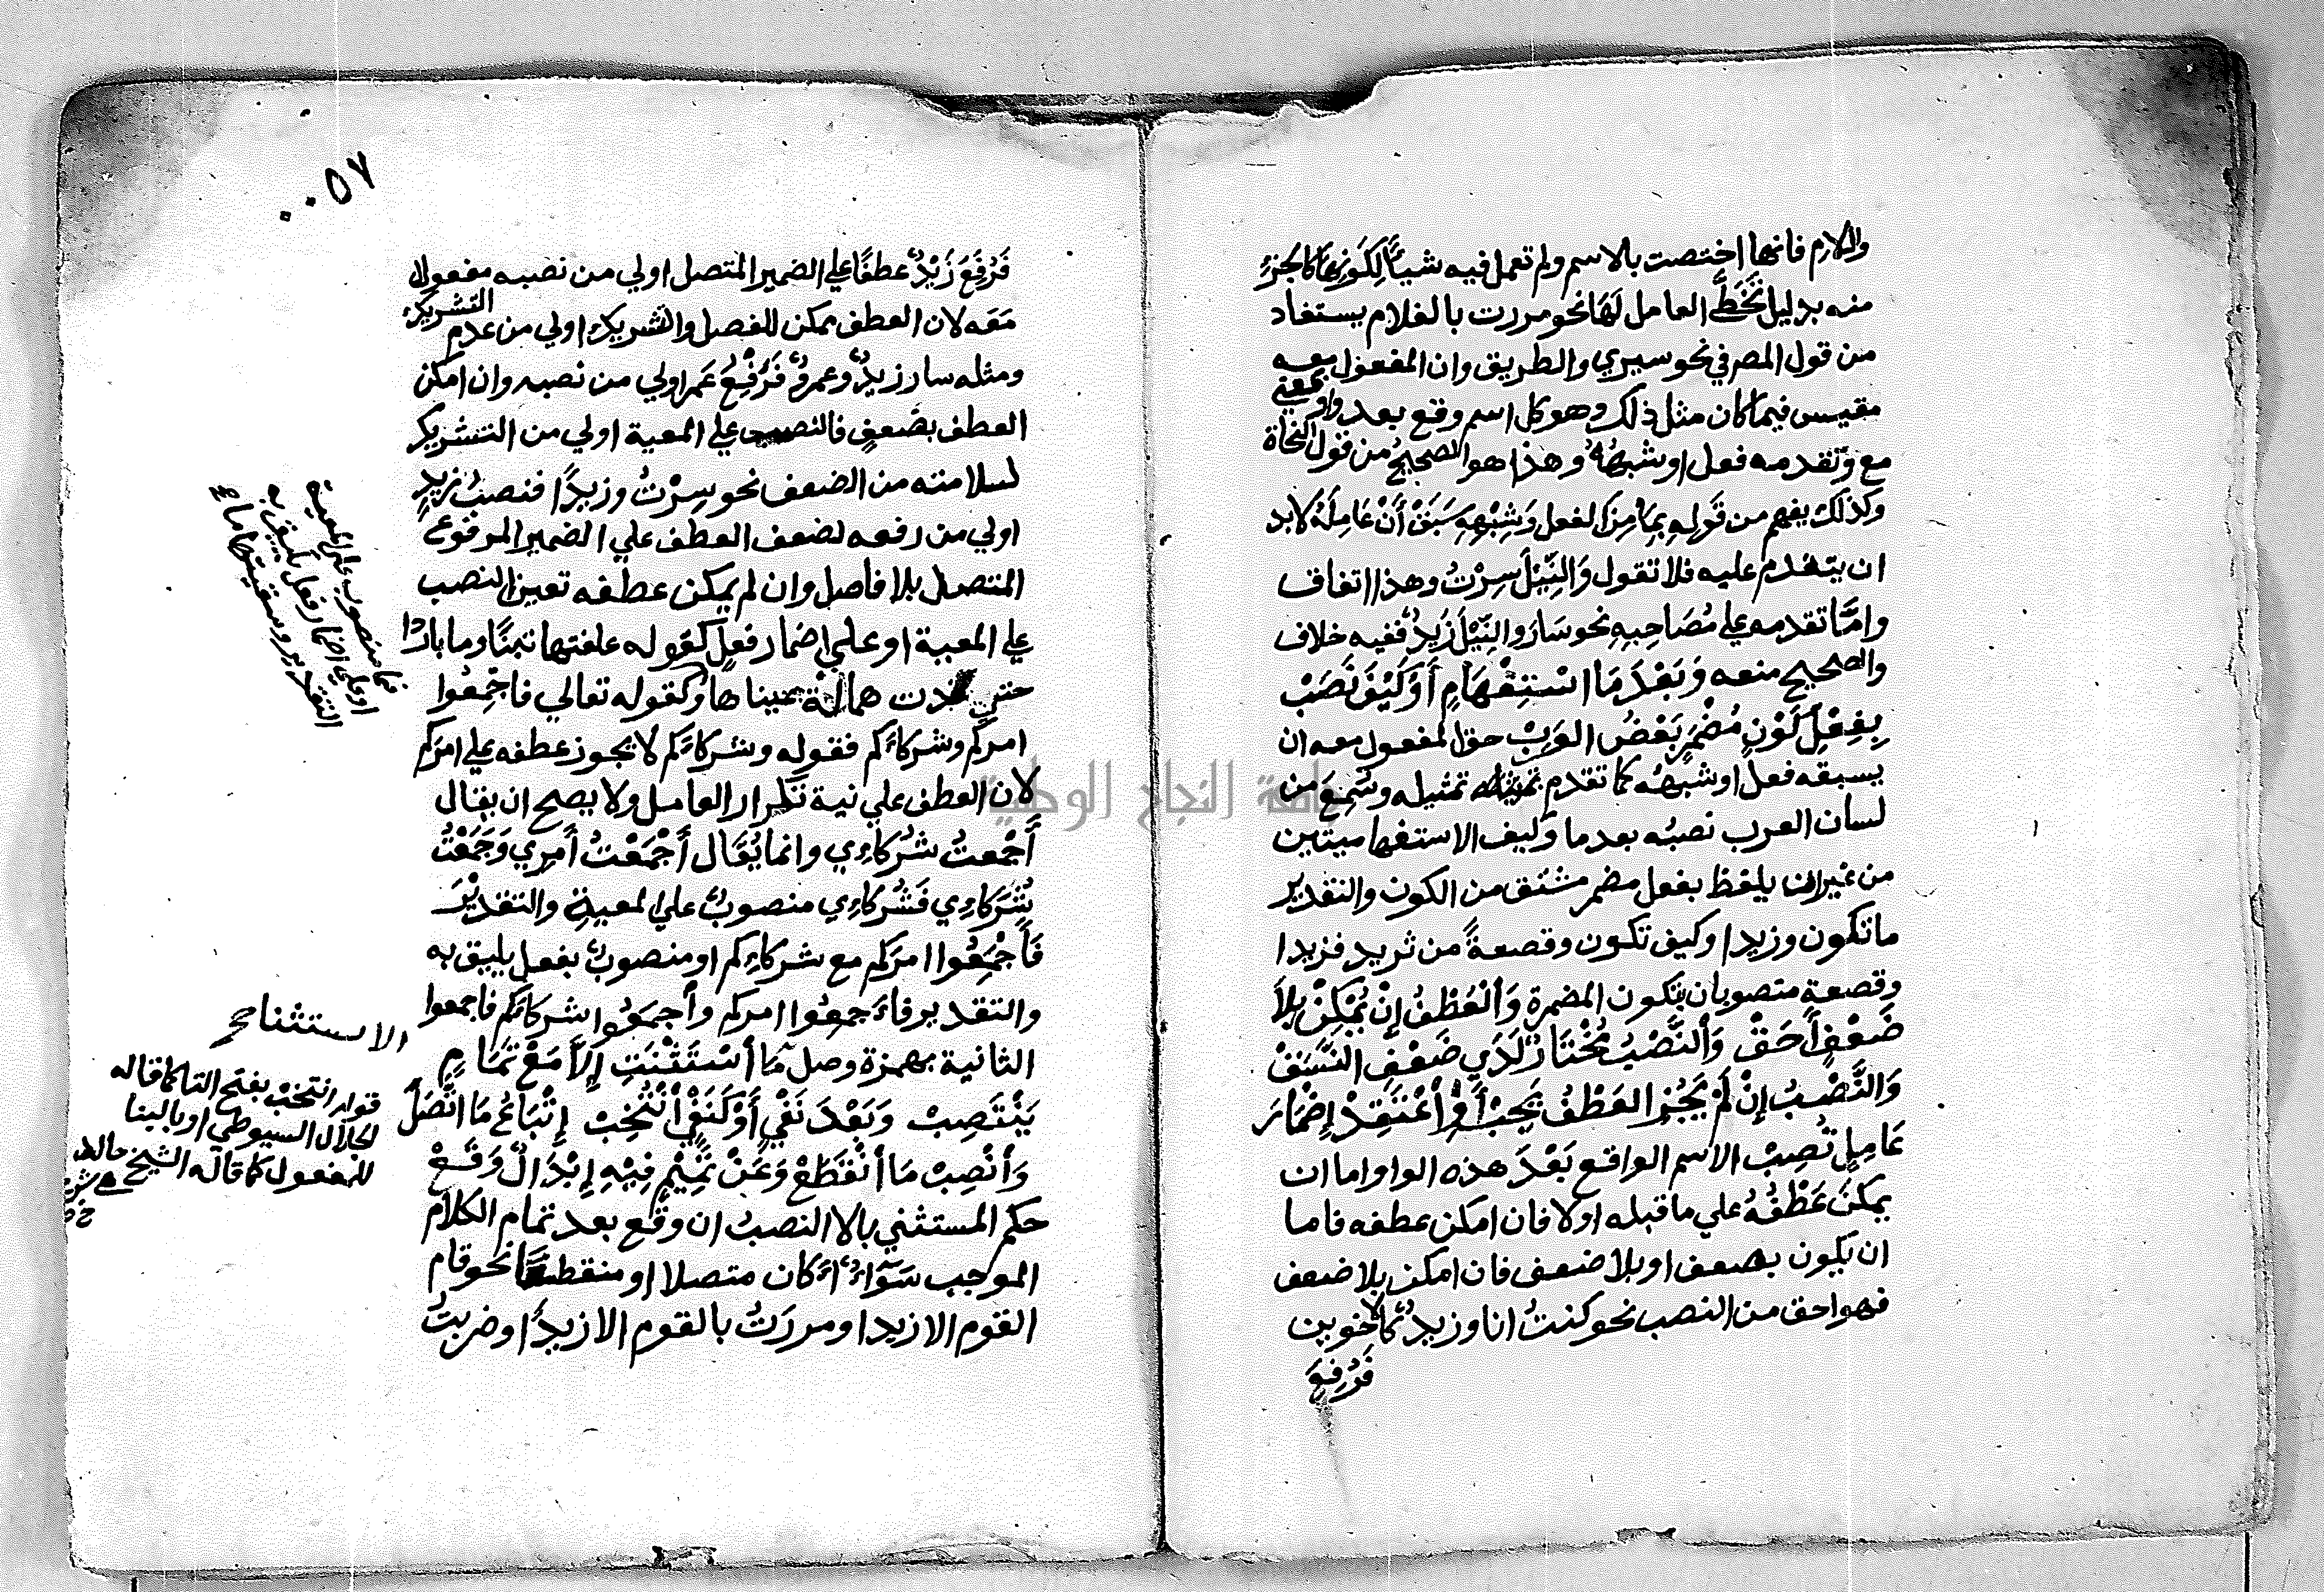 واللام فانها اختصت بالاسم ولم تعمل فيه شيئًا لِكَونِهَا كالجزءِ
منه بدليل تَخَطِّي العامل لَهَا نحو مررت بالغلام يستفاد
من قول المص في نحو سيري والطريق وان المفعول معه
مقيس فيما كان مثل ذلك وهو كل اسم وقع بعد واو بمعني
مع وتقدمه فعل او شبهُهُ وهذا هو الصحيحُ من قول النحاة
وكذلك يفهم من قَولِهِ بِمَا مِنَ الفعل وَشِبْهِهِ سَبَقْ أَنْ عَامِلَهُ لا بد
ان يتقدم عليه فلا تقول وَالنِّيْلَ سِرْتُ وهذا اتفاق
وامَّا تقدمه علي مُصَاحِبِهِ نحو سَارَ والنِّيْلَ زَيدٌ ففيه خلاف
والصحيح منعه وَبَعْدَ مَا اسْتِفْهَامٍ أَوْ كَيْفَ نَصَبْ
بِفِعْلِ كَوْنٍ مُضْمَرٍ بَعْضُ العَرَبْ حق المفعول معه ان
يسبقه فعل او شبهُه كما تقدم تمثيله وسُمِعَ من
لسان العرب نصبُه بعد ما وكيف الاستفهاميتين
من غير ان يلفظ بفعل مضمر مشتق من الكون والتقدير
ما تكون وزيدا وكيف تكون وقصعةً من ثريد فزيدا
وقصعة منصوبان بتكون المضمرة وَالْعَطْفُ إِنْ يُمْكِنْ بِلَا
ضَعْفٍ أَحَقْ وَالنَّصْبُ مُخْتَارٌ لَدَي ضَعْفِ النَّسَقْ
وَالنَّصْبُ إِنْ لَمْ يَجُزِ العَطْفُ يَجِبْ أَوِ اعْتَقِدْ إِضْمَارَ
عَامِلٍ تُصِبْ الاسم الواقع بَعْدَ هذه الواو اما ان
يمكنَ عَطْفُهُ علي ما قبله اولا فان امكن عطفه فاما
ان يكون بضعف او بلا ضعف فان امكن بلا ضعف
فهو احق من النصب نحو كنتُ انا وزيدٌ كالاخوين
فَرُفِعَ
٠٠٥٧
فَرُفِعَ زَيْدٌ عطفًا علي الضمير المتصل اولي من نصبه مفعولا
مَعَه لان العطف ممكن للفصل والتشريك اولي من عدم التشريك
ومثله سار زيدٌ وعمرٌو فَرَفْعُ عَمرٍ اولي من نصبه وان امكن
العطف بضَعفٍ فالنصب علي المعية اولي من التشريك
لسلامته من الضعف نحو سِرْتُ وزيدًا فنصبُ زيدٍ
اولي من رفعه لضعف العطف علي الضمير المرفوع
المتصل بلا فاصل وان لم يمكن عطفه تعين النصب
علي المعية او علي اضمار فعلٍ كقوله علفتها تبنًا وماء باردا
حتي غدت همالة عيناها وكقوله تعالي فاجْمِعُوا
امركم وشركاءكم فقوله وشركاءكم لا يجوز عطفه علي امركم
لان العطف علي نية تكرار العامل ولا يصح ان يقال
أَجْمعتُ شُرَكاءِي وانما يُقَال أَجْمَعْتُ أَمرِي وَجَمَعْتُ
شُرَكاءِي فَشُرَكاءِي منصوبٌ علي المعيةِ والتقديرَ
فَأَجْمِعُوا امرَكم مع شركاءِكم او منصوبٌ بفعل يليق به
والتقدير فاءَجمِعُوا امركم وأجمعُوا شركاءَكم فاجمعوا
الثانية بهمزة وصل مَا أسْتَثْنَتِ إِلاَّ مَعْ تَمَامٍ
يَنْتَصِبْ وَبَعْدَ نَفْيٍ أَوْ كَنَفْيٍ أنْتُخِبْ إِتْبَاعُ مَا اتَّصَلَ
وَأنْصِبْ مَا أنْقَطَعْ وَعَنْ تَمِيْمٍ فِيْهِ إِبْدَالٌ وَقَعْ
حكم المستثني بالا النصبُ ان وقع بعد تمام الكلام
الموجب سَوَاءٌ اءَكان متصلا او منقطعا نحو قام
القوم الا زيدا ومررَتُ بالقوم الا زيدًا وضربتُ
فما منصوب علي المعية
او علي اضمار فعل يليق به
التقدير وسقيتها ماء
الاستثنا صح
قوله انتخب بفتح التا كما قاله
الجلال السيوطي او بالبنا
للمفعول كما قاله الشيخ خالد
جامعة النجاح الوطنية